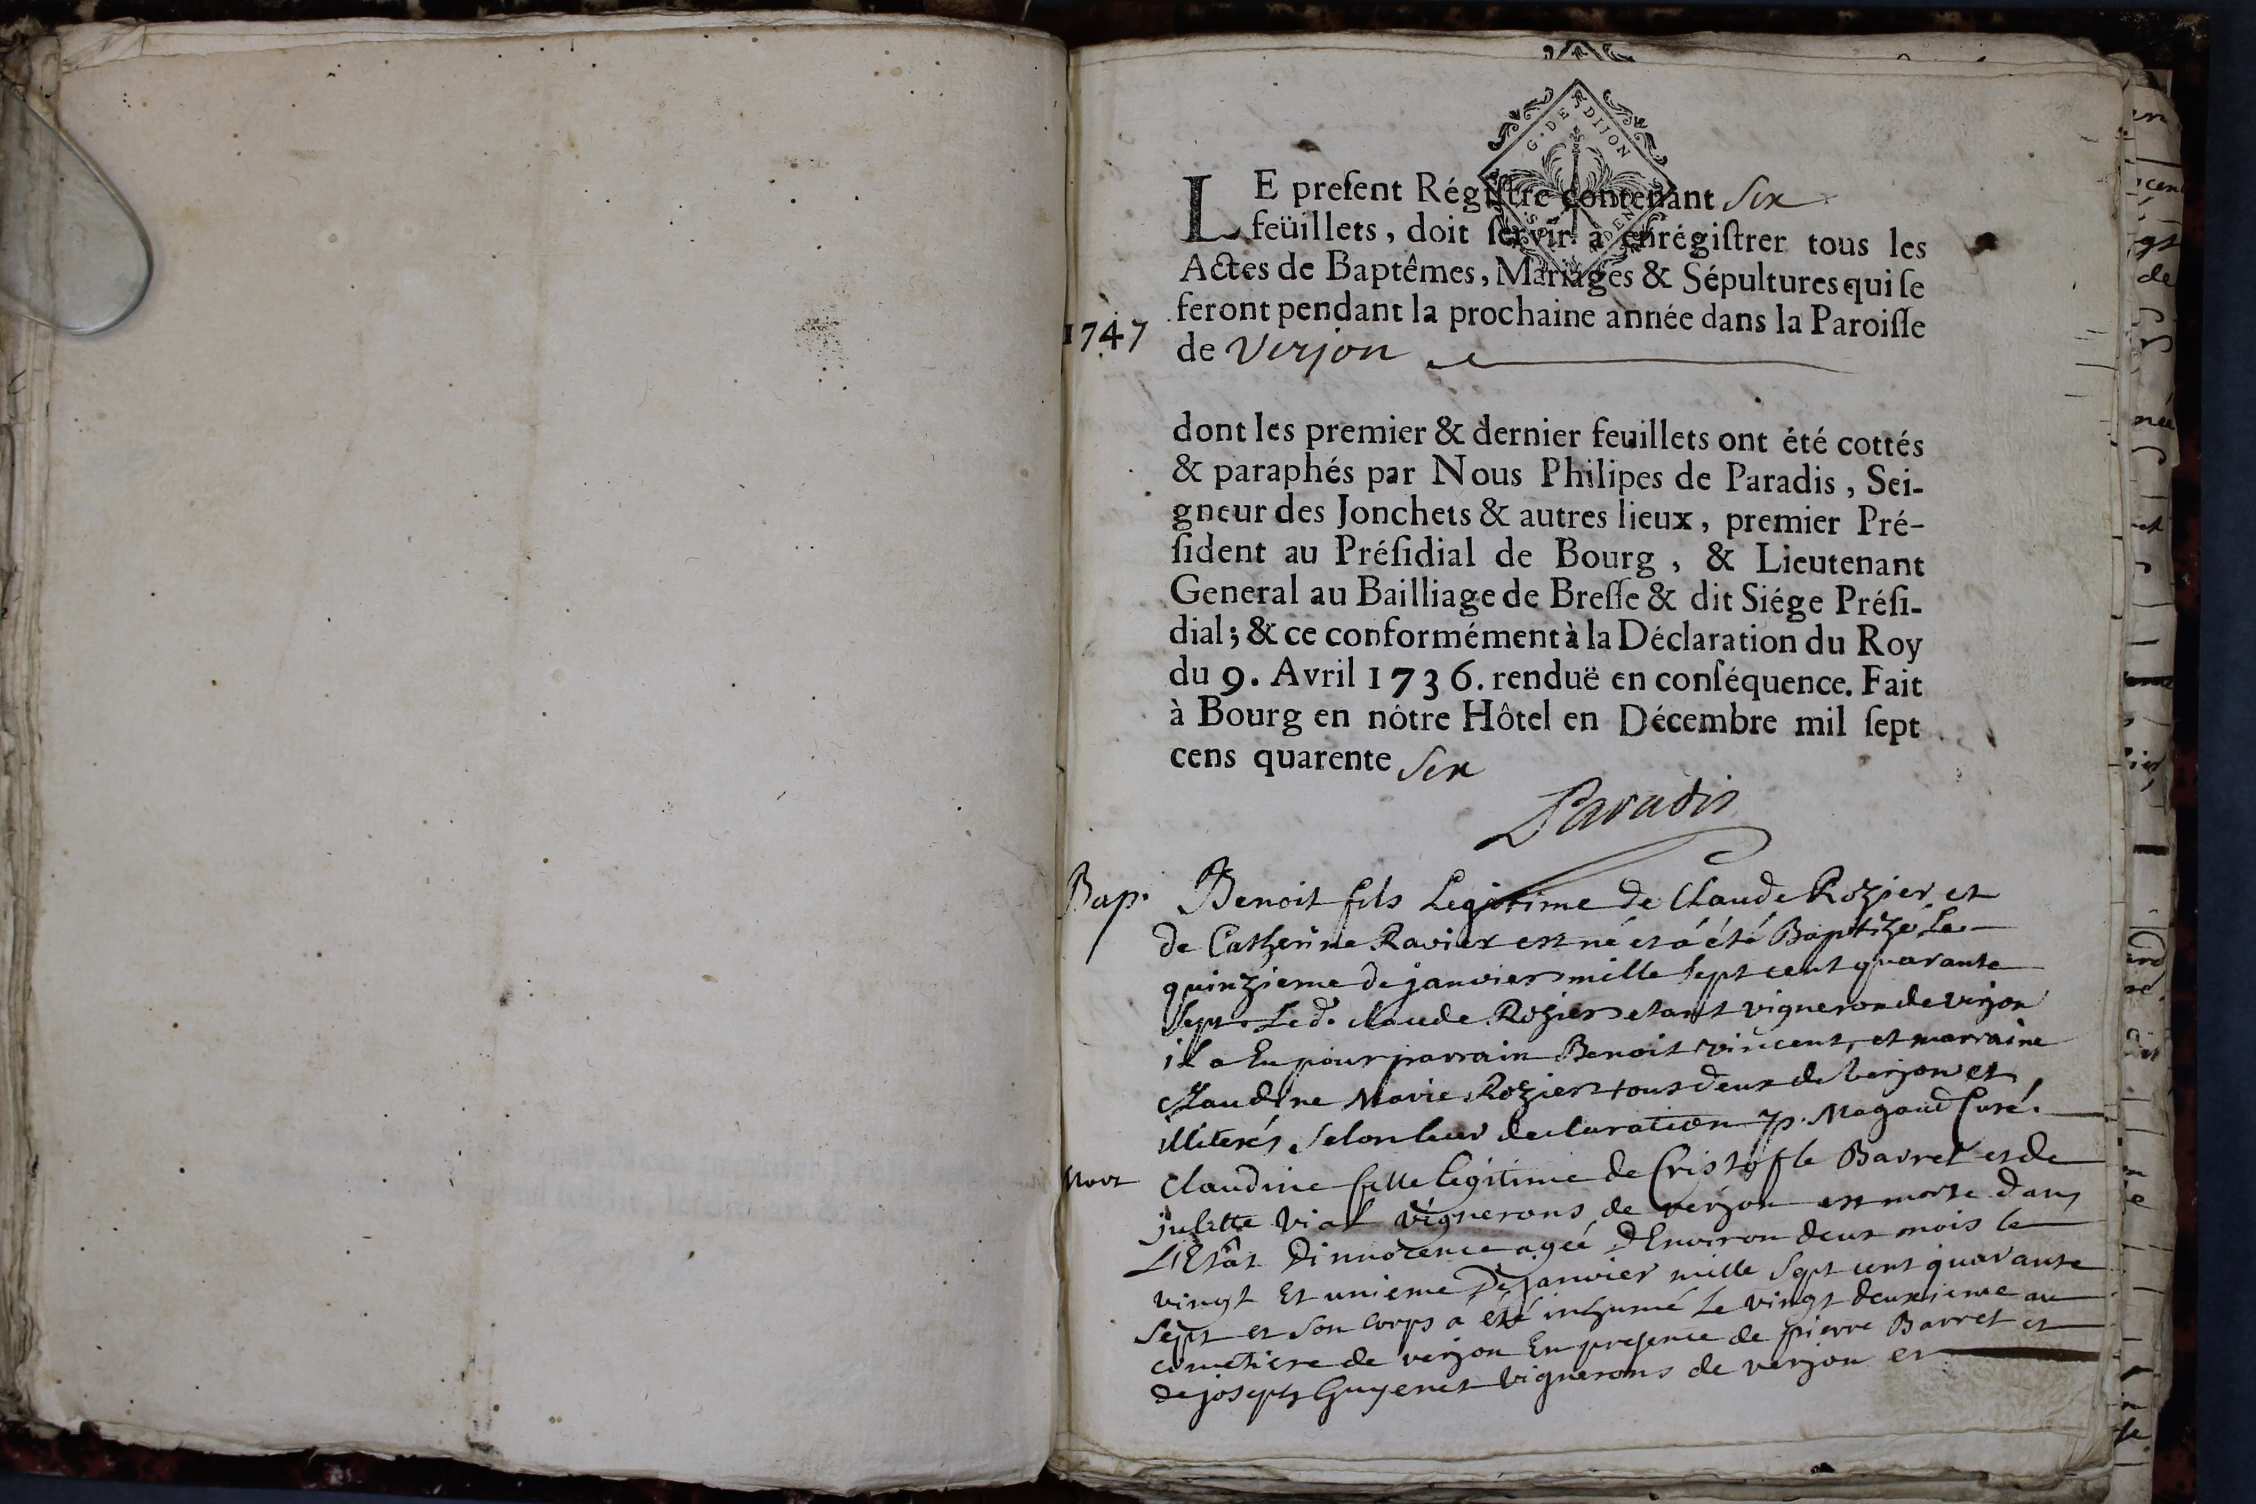 G. DE DIJON
LE preſent Régiſtre contenant Six
feüillets, doit ſervir à enrégiſtrer tous les
Actes de Baptêmes, Mariages & Sépultures qui ſe
feront pendant la prochaine année dans la Paroiſſe
1747
de Verjon
dont les premier & dernier feuillets ont été cottés
& paraphés par Nous Philipes de Paradis, Sei-
gneur des Jonchets & autres lieux, premier Pré-
ſident au Préſidial de Bourg, & Lieutenant
General au Bailliage de Breſſe & dit Siége Préſi-
dial; & ce conformément à la Déclaration du Roy
du 9. Avril 1736. renduë en conſéquence. Fait
à Bourg en nôtre Hôtel en Décembre mil ſept
cens quarente Six
Paradis
Bap. Benoit fils Legitime de Claude Rozier et
de Catherine Ravier est né et á été Baptizé Le
quinzieme de janvier mille sept cent quarante
sept. Led. claude Rozier etant vigneron de verjon
il a Eu pour parrain Benoit vincent, et marraine
claudine Marie Rozier tous deux de verjon et
illiterés selon leur declaration p. Magaud Curé.
Mort claudine fille legitime de Cristofle Barret et de
juliette Vial vignerons de verjon est morte dans
L'Etât d'innocence agée d'Environ deux mois le
vingt Et unieme De janvier mille sept cent quarante
sept et son corps á été inhumé Le vingt deuxieme au
cimetiere de verjon En presence de pierre Barret et
de joseph Guyenet vignerons de verjon et